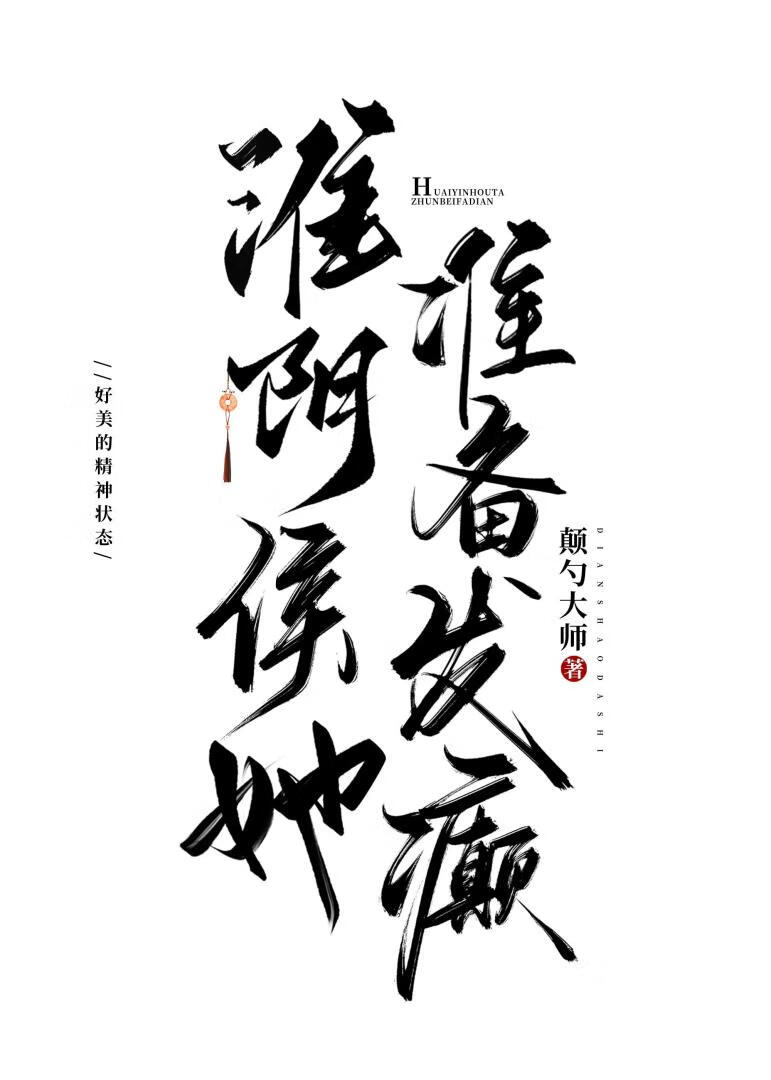 淮阴侯她
HUAIYINHOUTA
ZHUNBEIFADIAN
准备发癫
//好美的精神状态/
颠勺大师著
DIANSHAODASHI